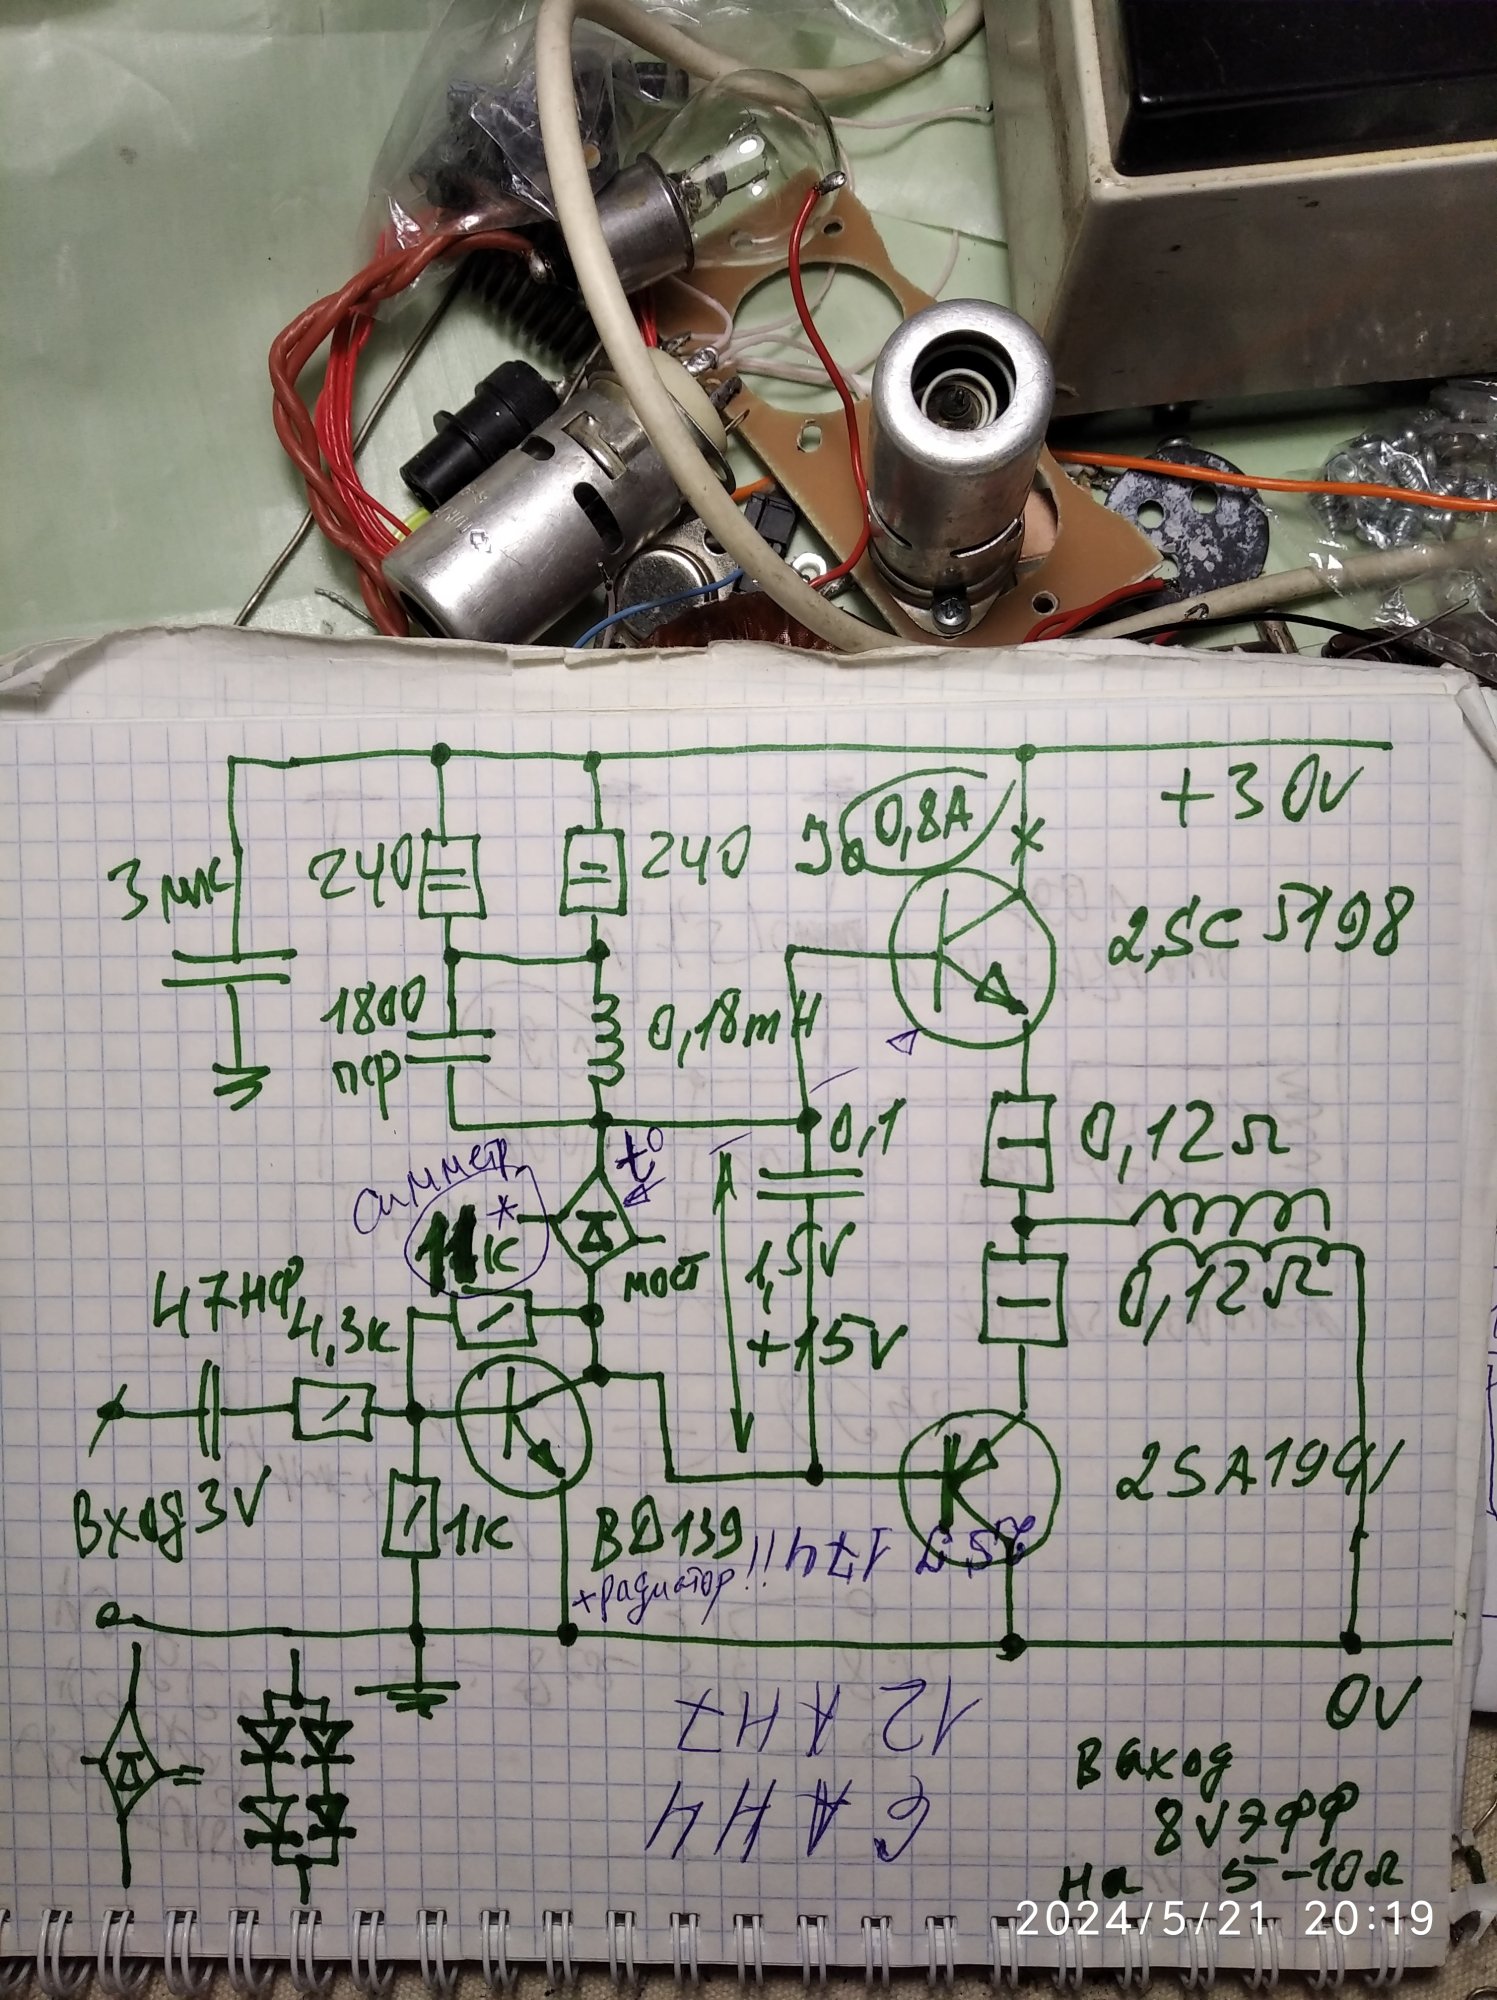 +30V
3 мк
240
240
Jo 0,8A
2SC 5198
1800
пф
0,18mH
0,1
0,12Ω
симметр
*
11к
t°
мост
1,5V
+15V
0,12Ω
47нф
4,3к
Вход 3V
1к
BD139
+радиатор!!
2SA1941
0V
12 AH7
6 AH4
Выход
8V эфф
на 5-10Ω
2024/5/21 20:19